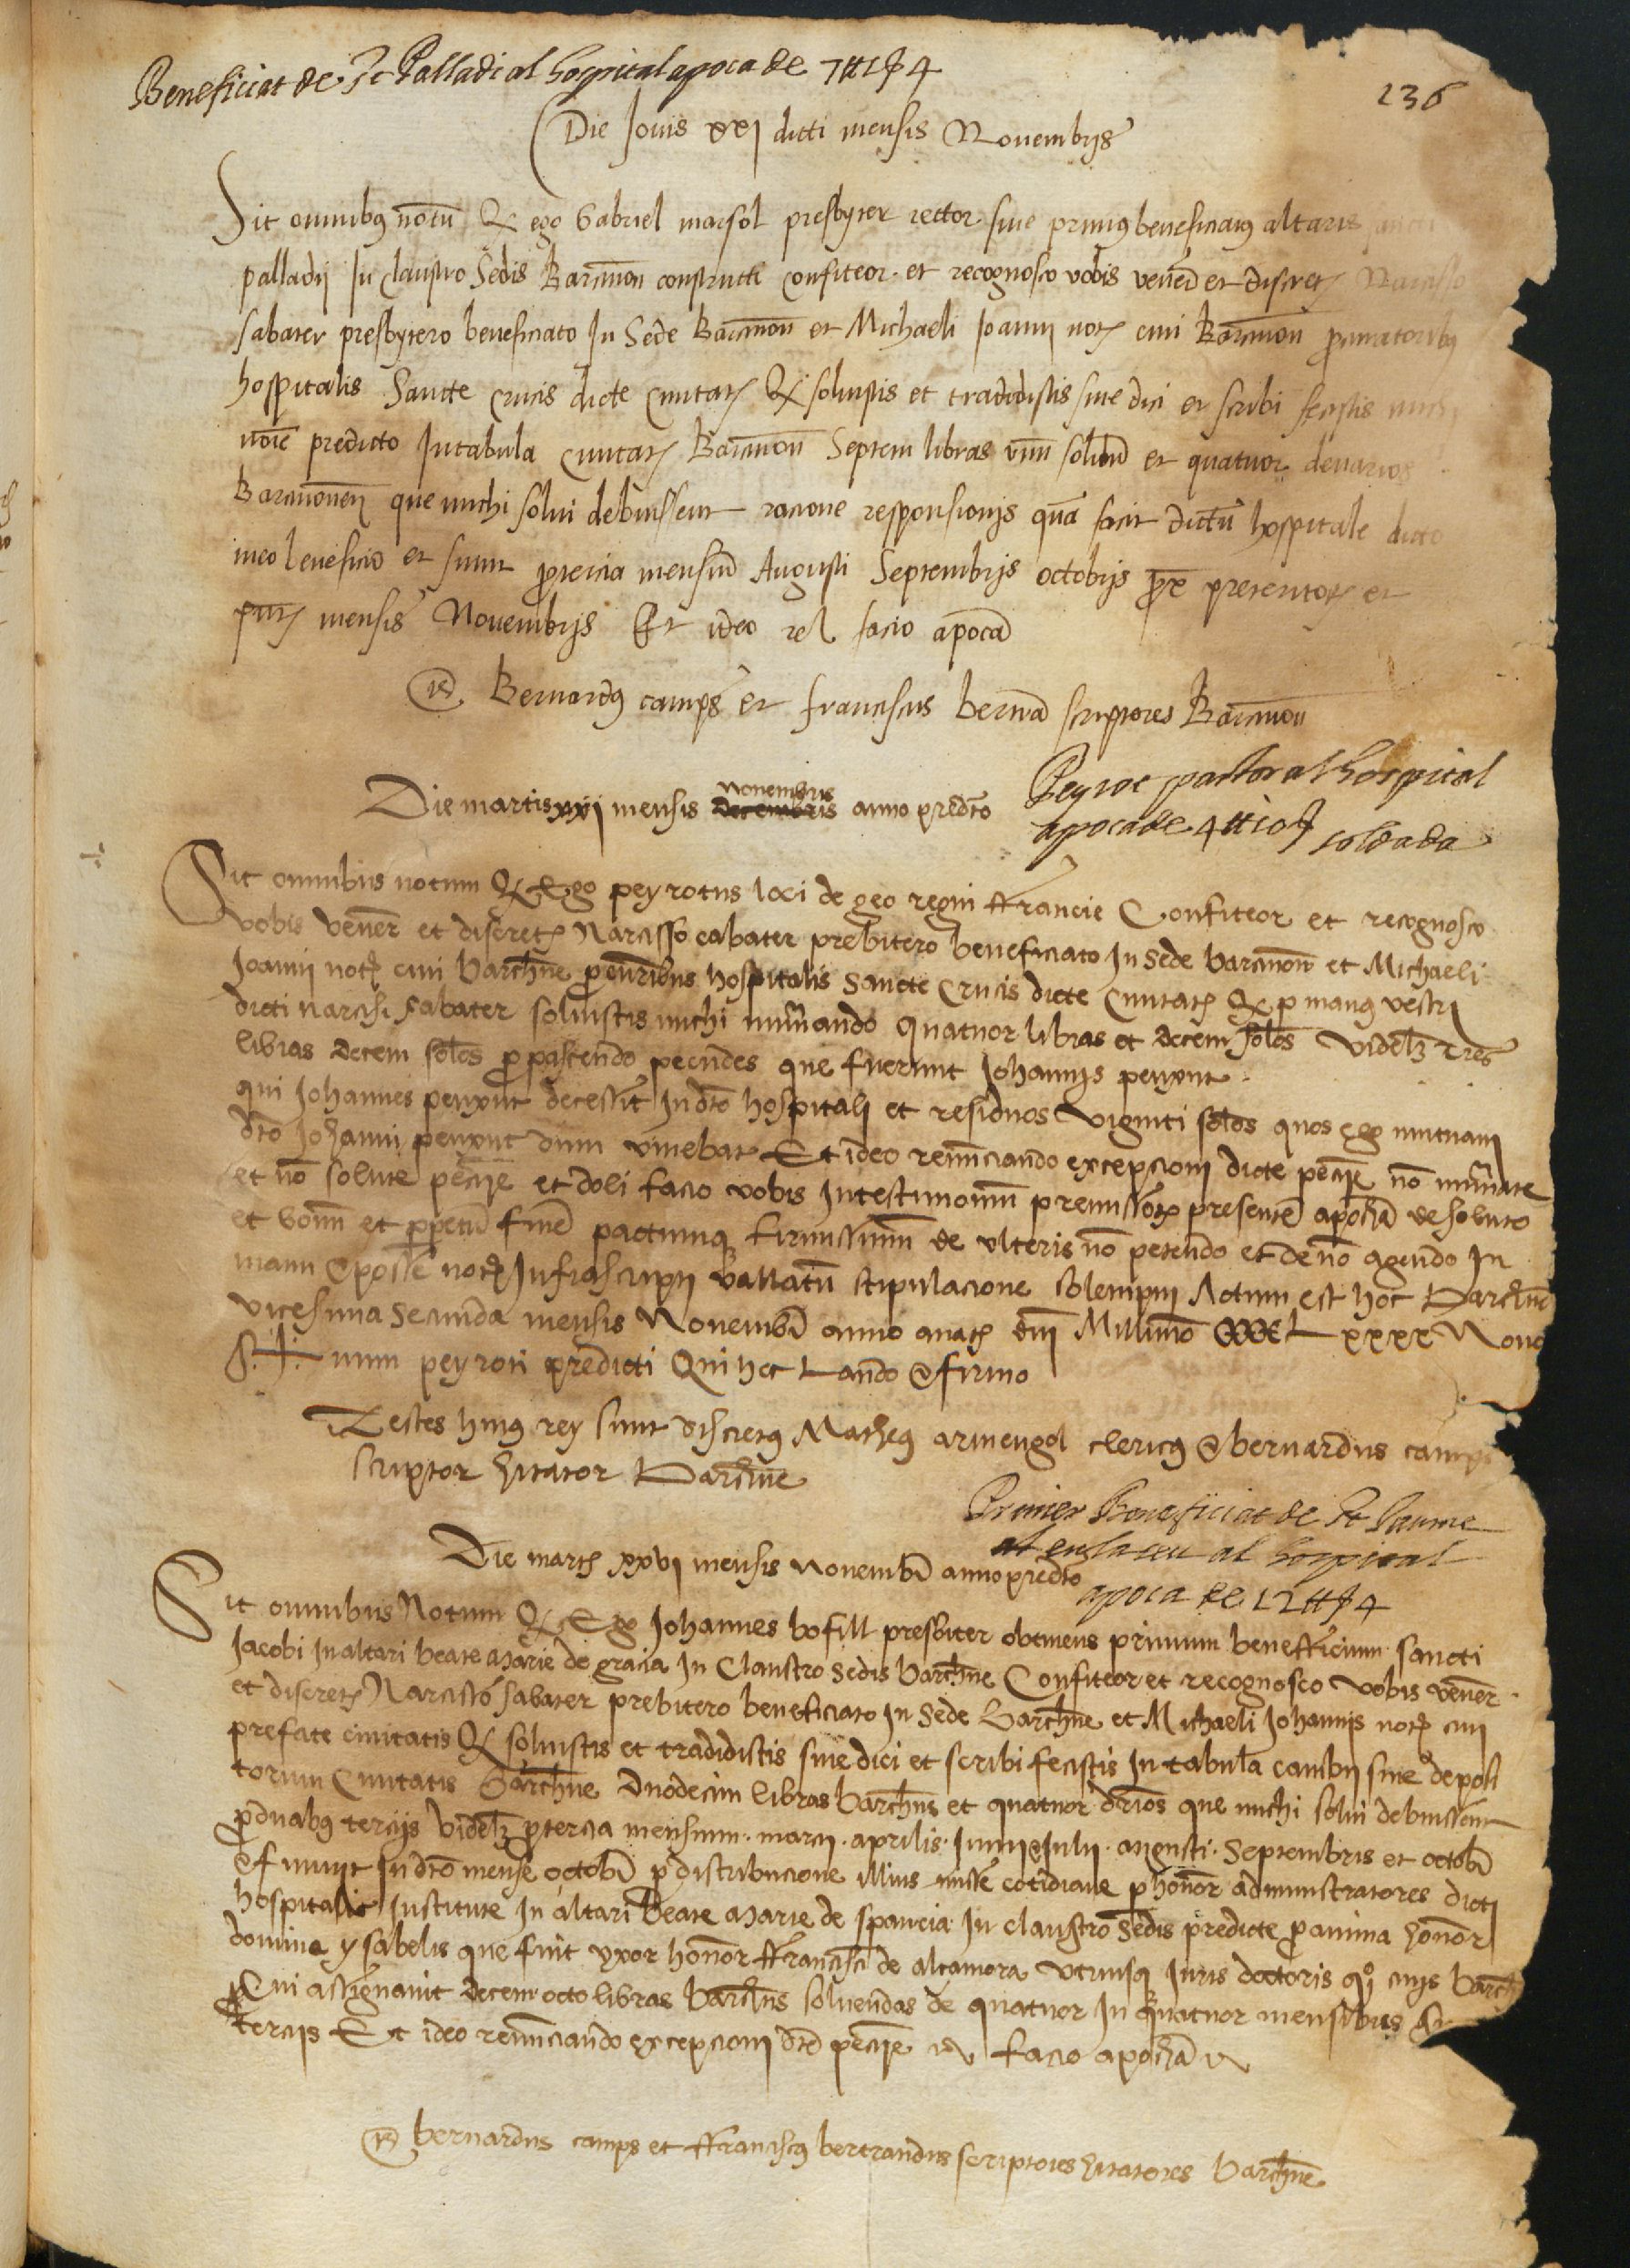 Beneficiat de St Palladi al hospital apoca de 7 ₶ 1 ꝭ 4
236
Die Jouis xxj dicti mensis Nouembrijs
Sit omnibꝰ notũ Qꝫ ego Gabriel marsol presbyter rector siue primꝰ beneficiatꝰ altaris sancti
palladij In claustro Sedis Barcinoñ constructi confiteor et recognosco vobis veñed et discretꝭ Narcisso
sabater presbytero beneficiato In Sede Barcinoñ et Michaeli Joanni notꝭ ciui Barcinoñ ꝓcuratoribꝰ
hospitalis Sancte crucis dicte ciuitatꝭ Qꝫ soluistis et tradidistis siue dici et scribi fecistis michi
noie predicto In tabula ciuitatꝭ Barcinoñ Septem libras vnũ solidũ et quatuor denarios
Barcinoneñ que michi solui debuissent racione responsionis quã facit dictũ hospitale dicto
meo beneficio et sunt ꝓ tercia mensiũ Augusti Septembris octobris ꝓxe preteritorꝭ et
pntꝭ mensis Nouembrijs Et ideo reñ facio apocã
Bernardꝰ camps et franciscus bertrãd scriptores Barcinoñ
Peyrot pastor al hospital
apoca de 4 ₶ 10 ꝭ soldada
Die martis xxij mensis nouembris decembris anno predc̃to
Sit omnibus notum Qꝫ Ego peyrotus loci de geo regni ffrancie Confiteor et recognosco
vobis veneꝝ et discretꝭ Narcisso cabater prebitero beneficiato In Sede barcinoñ et Michaeli
Joanni notꝭ ciui barchñe ꝓcurõribus hospitalis Sancte Crucis dicte ciuitatꝭ Qꝫ ꝑ manꝰ vestri
dicti narcisi sabater soluistis michi numerando quatuor libras et decem solos videlꝫ tres
libras decem solos ꝓ pascendo pecudes que fuerunt Johannis penyxut
qui Johannes penyxut decessit In dc̃to hospitali et residuos viginti solos quos ego mutuaui
dc̃to Johanni penyxut dum viuebat Et ideo renũciando excepcioni dicte pecũie nõ numerate
et nõ solute pecũie et doli facio vobis In testimonium premissorꝝ presentẽ apochã de soluto
et bonũ et ꝑpetuũ finẽ pactumqꝫ firmissimũ de vlteris nõ petendo et de nõ agendo In
manu & posse notꝭ Infrascripti vallatũ stipulacione solempni Actum est hoc Barchñe
vicesima secunda mensis Nouembr̃ anno a natꝭ dñi Millimo XXXL xxxx Nono
S✝num peyroti predicti Qui hec Laudo & firmo
Testes huiꝰ rey sunt discretꝰ Matheꝰ armengol clericꝰ & bernardus camps
scriptor hitator Barchñe
Primer Beneficiat de St Jaume
en la seu al hospital
apoca de 12 ₶ ꝭ 4
Die martꝭ xxvi mensis nouembr̃ anno predc̃to
Sit omnibus Notum Qꝫ Ego Johannes bofill presbiter obtinens primum benefficium sancti
Jacobi In altari beate Marie de gracia In Claustro Sedis barchñe Confiteor et recognosco vobis veneꝝ
et discretꝭ Narcisso sabater prebitero beneficiato In Sede Barchñe et Michaeli Johannis notꝭ ciui
prefate ciuitatis Qꝫ soluistis et tradidistis siue dici et scribi fecistis In tabula cambij siue deposi
torum Ciuitatis Barchñe duodecim libras barchñs et quatuor drios que michi solui debuissent
ꝓ duabꝰ tercijs videlꝫ ꝓ tercia mensium marcij aprilis Junij & Julij augusti Septembris et octobr̃
& finiuit In dc̃to mense octobr̃ ꝓ distribucione illius misse cotidiane ꝑ honor̃ administratores dicti
hospitalis Institute In altari Beate Marie de spaneia In claustro Sedis predicte ꝓ anima honor̃
domine ysabelis que fuit vxor honor̃ ffrancisci de altamora vtriusqꝫ Iuris doctoris qº ciuis barchñ
Qui assignauit decem octo libras barchñs soluendas de quatuor In quatuor mensibus
ꝓ tercijs Et ideo renũciando excepcioni dc̃te pecũie facio apochã
bernardus camps et ffranciscꝰ bertrandus scriptores hitatores barchñe